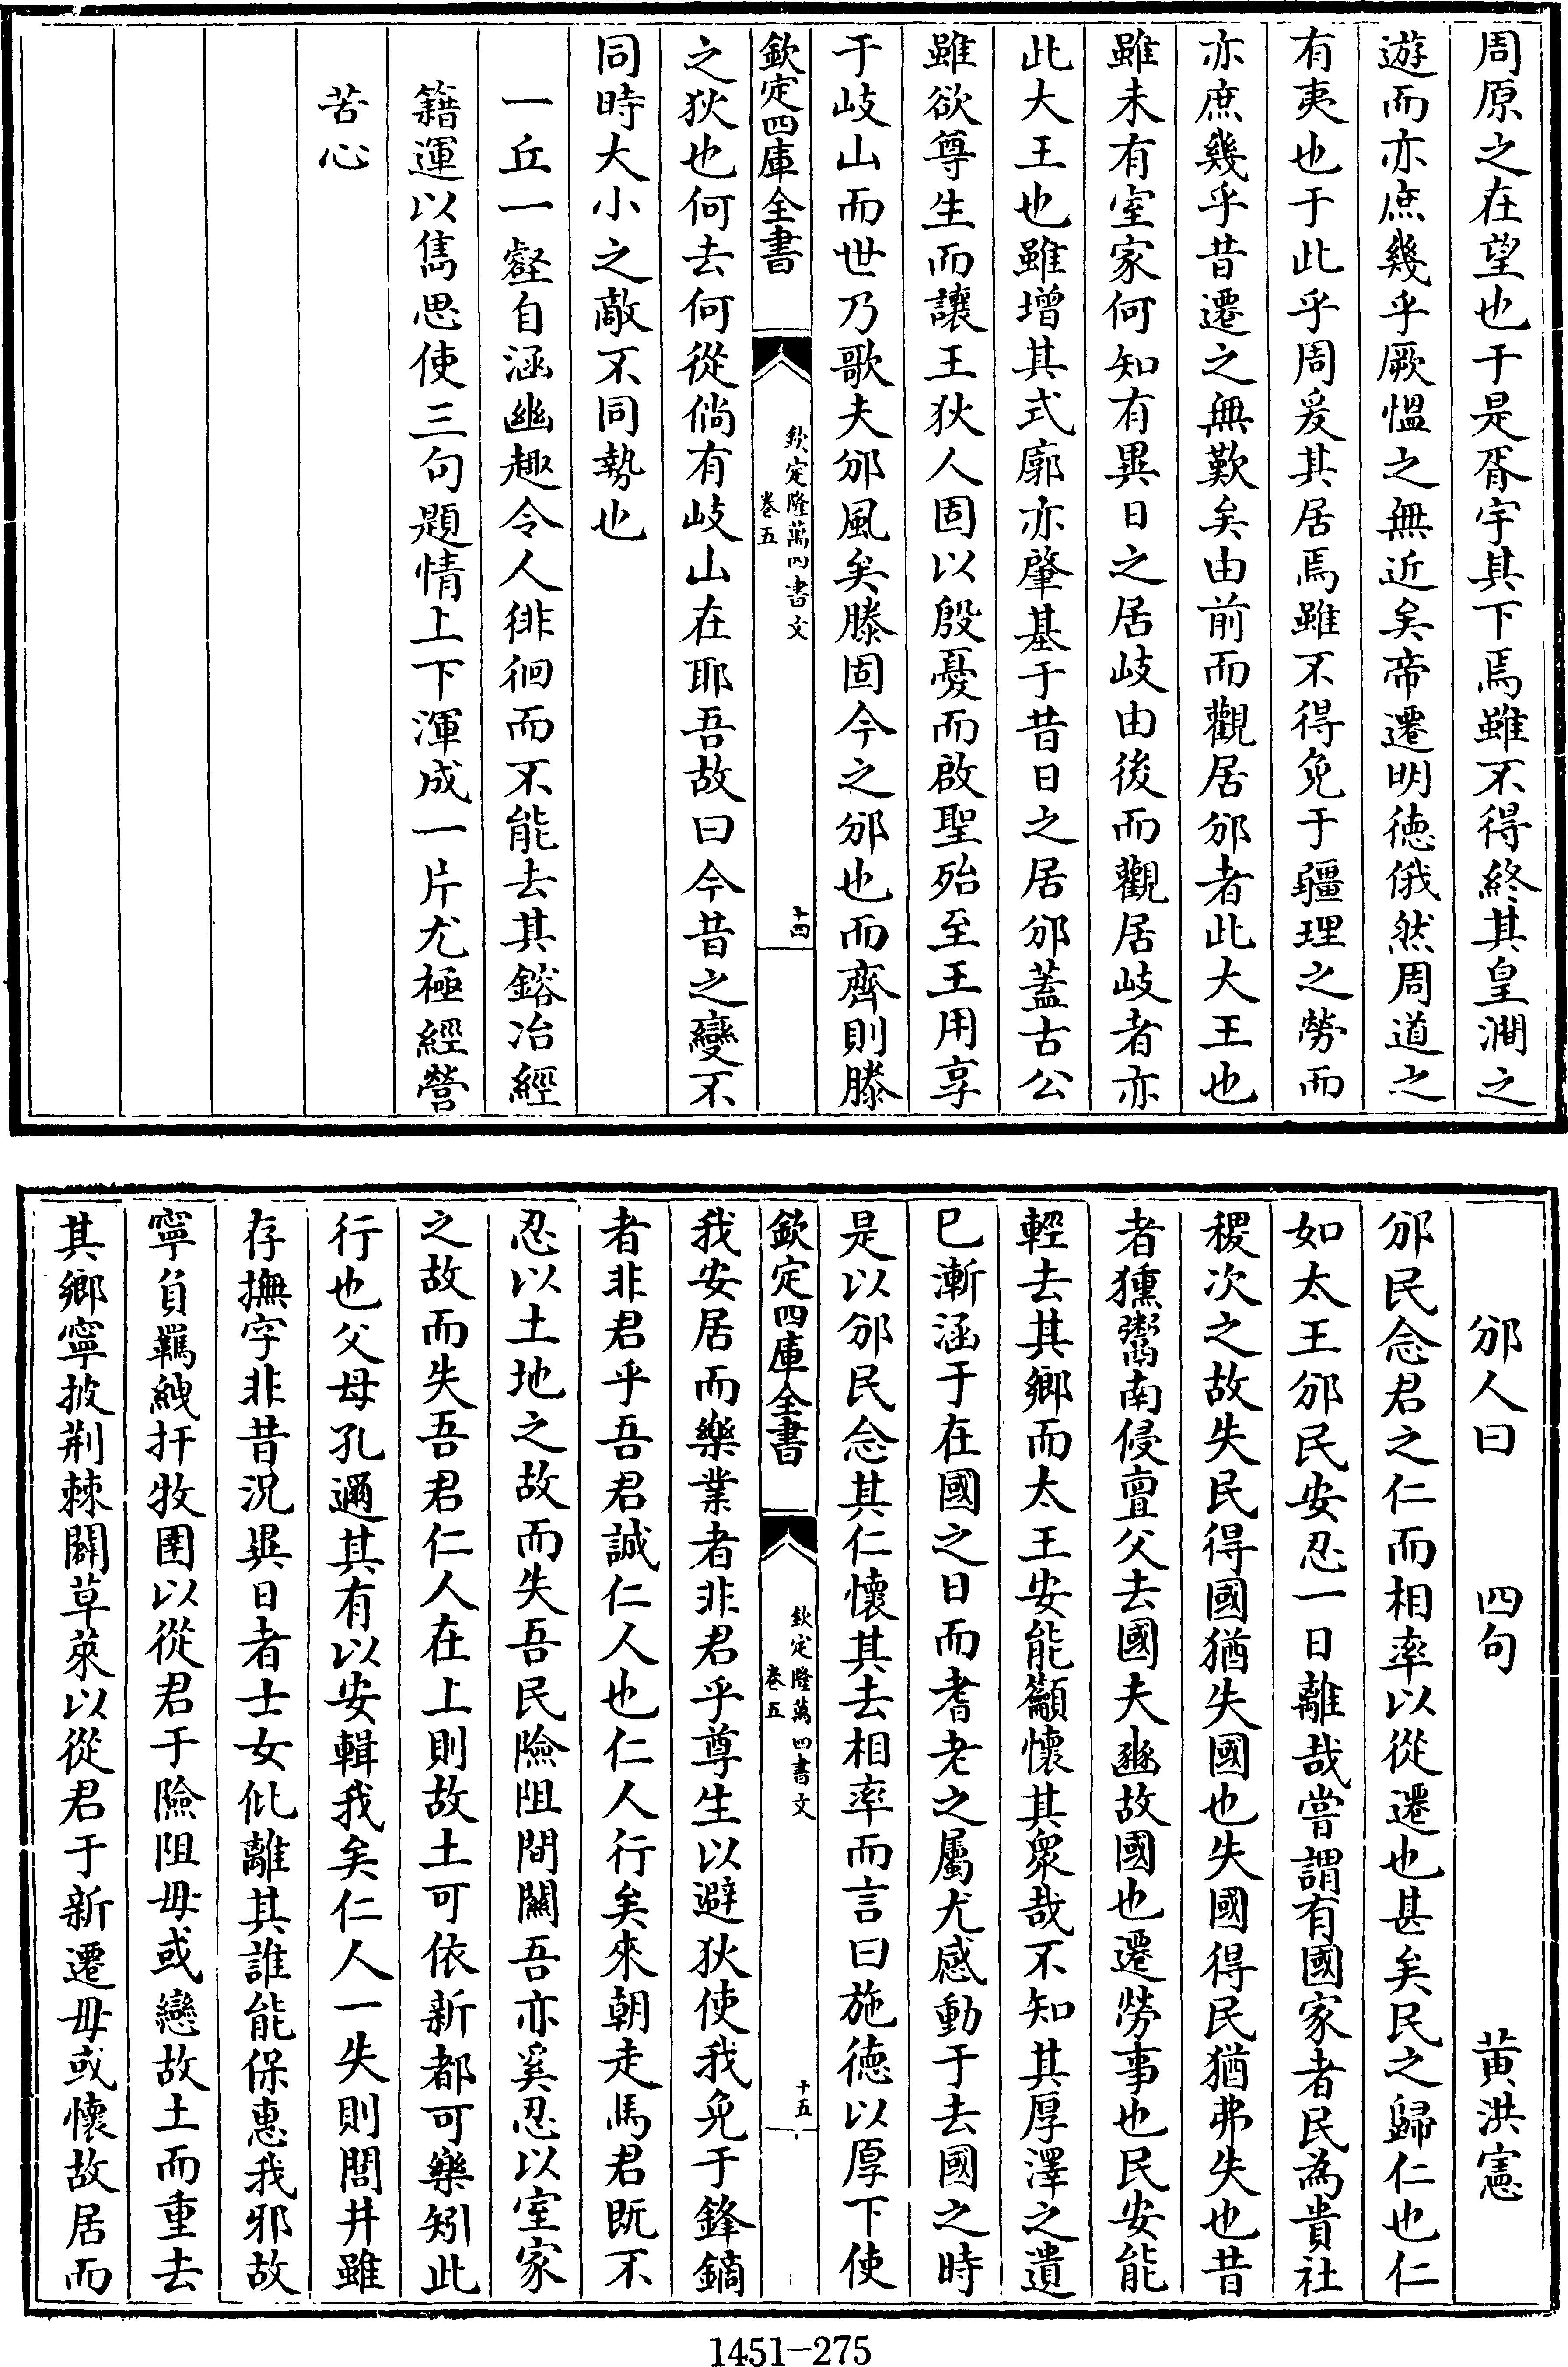 周原之在望也于是胥宇其下焉雖不得終其皇澗之
遊而亦庶幾乎厥慍之無近矣帝遷明徳俄然周道之
有夷也于此乎周爰其居焉雖不得免于疆理之勞而
亦庶幾乎昔遷之無歎矣由前而觀居邠者此大王也
雖未有室家何知有異日之居岐由後而觀居岐者亦
此大王也雖增其式廓亦肇基于昔日之居邠蓋古公
雖欲尊生而讓王狄人固以殷憂而啟聖殆至王用享
于岐山而世乃歌夫邠風矣滕固今之邠也而齊則滕
欽定四庫全書
欽定隆萬四書文
卷五
十四
之狄也何去何從倘有岐山在耶吾故曰今昔之變不
同時大小之敵不同勢也
一丘一壑自涵幽趣令人徘徊而不能去其鎔冶經
籍運以雋思使三句題情上下渾成一片尤極經營
苦心
邠人曰 四句 黄洪憲
邠民念君之仁而相率以從遷也甚矣民之歸仁也仁
如太王邠民安忍一日離哉嘗謂有國家者民為貴社
稷次之故失民得國猶失國也失國得民猶弗失也昔
者獯鬻南侵亶父去國夫豳故國也遷勞事也民安能
輕去其鄉而太王安能籲懷其衆哉不知其厚澤之遺
已漸涵于在國之日而耆老之屬尤感動于去國之時
是以邠民念其仁懷其去相率而言曰施徳以厚下使
欽定四庫全書
欽定隆萬四書文
卷五
十五
我安居而樂業者非君乎尊生以避狄使我免于鋒鏑
者非君乎吾君誠仁人也仁人行矣來朝走馬君既不
忍以土地之故而失吾民險阻間關吾亦奚忍以室家
之故而失吾君仁人在上則故土可依新都可樂矧此
行也父母孔邇其有以安輯我矣仁人一失則閭井雖
存撫字非昔況異日者士女仳離其誰能保惠我邪故
寧負羈絏扞牧圉以從君于險阻毋或戀故土而重去
其鄉寧披荆棘闢草萊以從君于新遷毋或懷故居而
1451-275